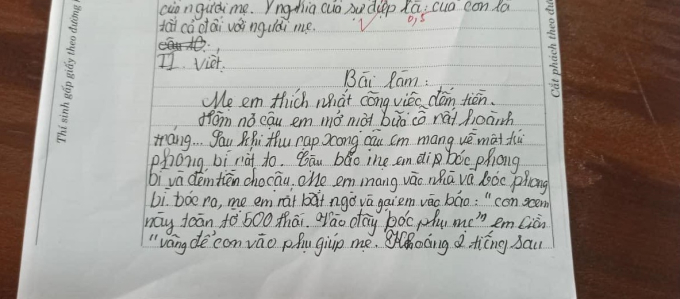 của người me. Ý nghĩa của sự điệp là: của con là
tất cả đối với người mẹ.
0,5
câu 10:
II. Viết.
Bài làm:
Mẹ em thích nhất công việc đếm tiền.
Hôm nọ cậu em mở một bữa cỗ rất hoành
tráng... Sau khi thu rạp xong cậu em mang về một túi
phong bì rất to. Cậu bảo mẹ em bóc phong
bì và đếm tiền cho cậu, Mẹ em mang vào nhà và bóc phong
bì. bóc ra, mẹ em rất bất ngờ và gọi em vào bảo: "con xem
này toàn tờ 500 thôi. Vào đây bóc phụ mẹ" em liền
"vâng để con vào phụ giúp mẹ. Khoảng 2 tiếng sau
Thí sinh gấp giấy theo đường
Cắt phách theo đư